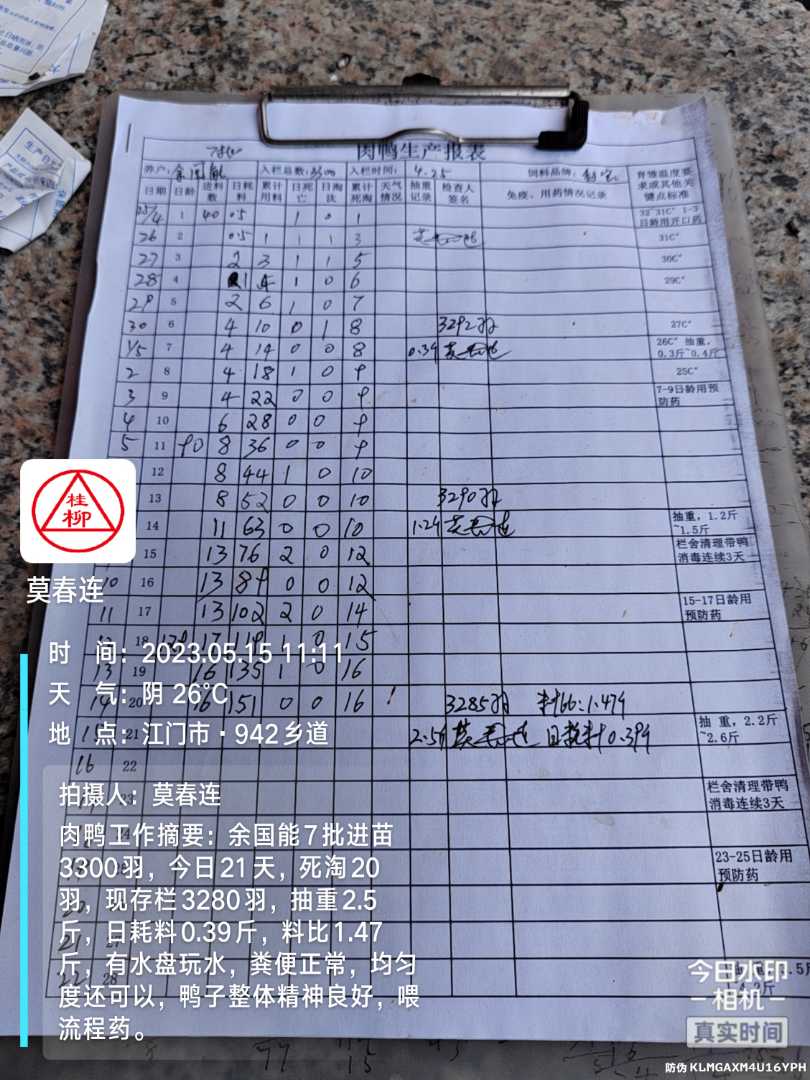 肉鸭生产报表
养户: 余国能 入栏总数: 3300 入栏时间: 4.25 饲料品牌:
日期 日龄 进料数 日耗料 累计用料 日死亡 日淘汰 累计死淘 天气情况 抽重记录 检查人签名 免疫、用药情况记录 育雏温度要求或其他关键点标准
25/4 1 40 0.5 1 0 1 32~31C° 1-3日龄用开口药
26 2 0.5 1 1 1 3 31C°
27 3 2 3 1 1 5 30C°
28 4 1 0 6 29C°
29 5 2 6 1 0 7
30 6 4 10 0 1 8 3292羽 27C°
1/5 7 4 14 0 0 8 26C° 抽重, 0.3斤~0.4斤
2 8 4 18 1 0 9 25C°
3 9 4 22 0 0 9 7-9日龄用预防药
4 10 6 28 0 0 9
5 11 90 8 36 0 0 9
12 8 44 1 0 10
13 8 52 0 0 10 3290羽
14 11 63 0 0 10 莫春连 抽重, 1.2斤~1.5斤
15 13 76 2 0 12 栏舍清理带鸭消毒连续3天
10 16 13 89 0 0 12
11 17 13 102 2 0 14 15-17日龄用预防药
18 17 119 1 0 15
13 19 16 135 1 0 16
14 20 16 151 0 0 16 3285羽 料比:1.479
15 21 莫春连 日耗料0.39斤 抽重, 2.2斤~2.6斤
16 22
栏舍清理带鸭消毒连续3天
23-25日龄用预防药
桂柳
莫春连
时 间: 2023.05.15 11:11
天 气: 阴 26℃
地 点: 江门市·942乡道
拍摄人: 莫春连
肉鸭工作摘要: 余国能7批进苗
3300羽, 今日21天, 死淘20
羽, 现存栏3280羽, 抽重2.5
斤, 日耗料0.39斤, 料比1.47
斤, 有水盘玩水, 粪便正常, 均匀
度还可以, 鸭子整体精神良好, 喂
流程药。
今日水印
相机
真实时间
防伪 KLMGAXM4U16YPH